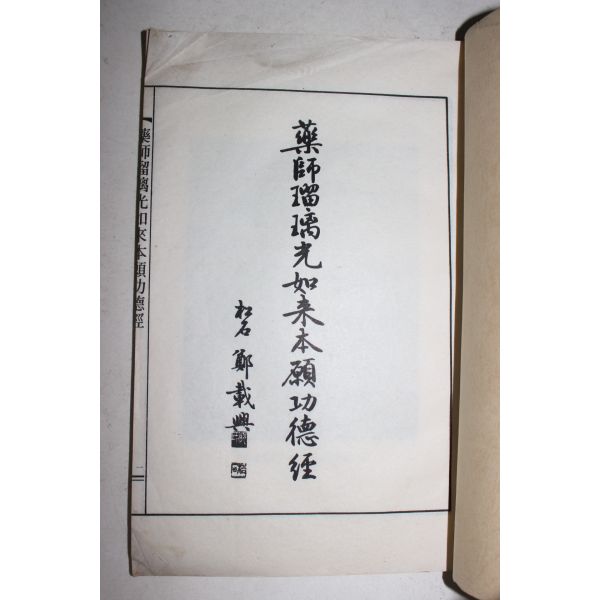 藥師瑠璃光如来本願功德經
松石 鄭載興
藥師瑠璃光如來本願功德經
二